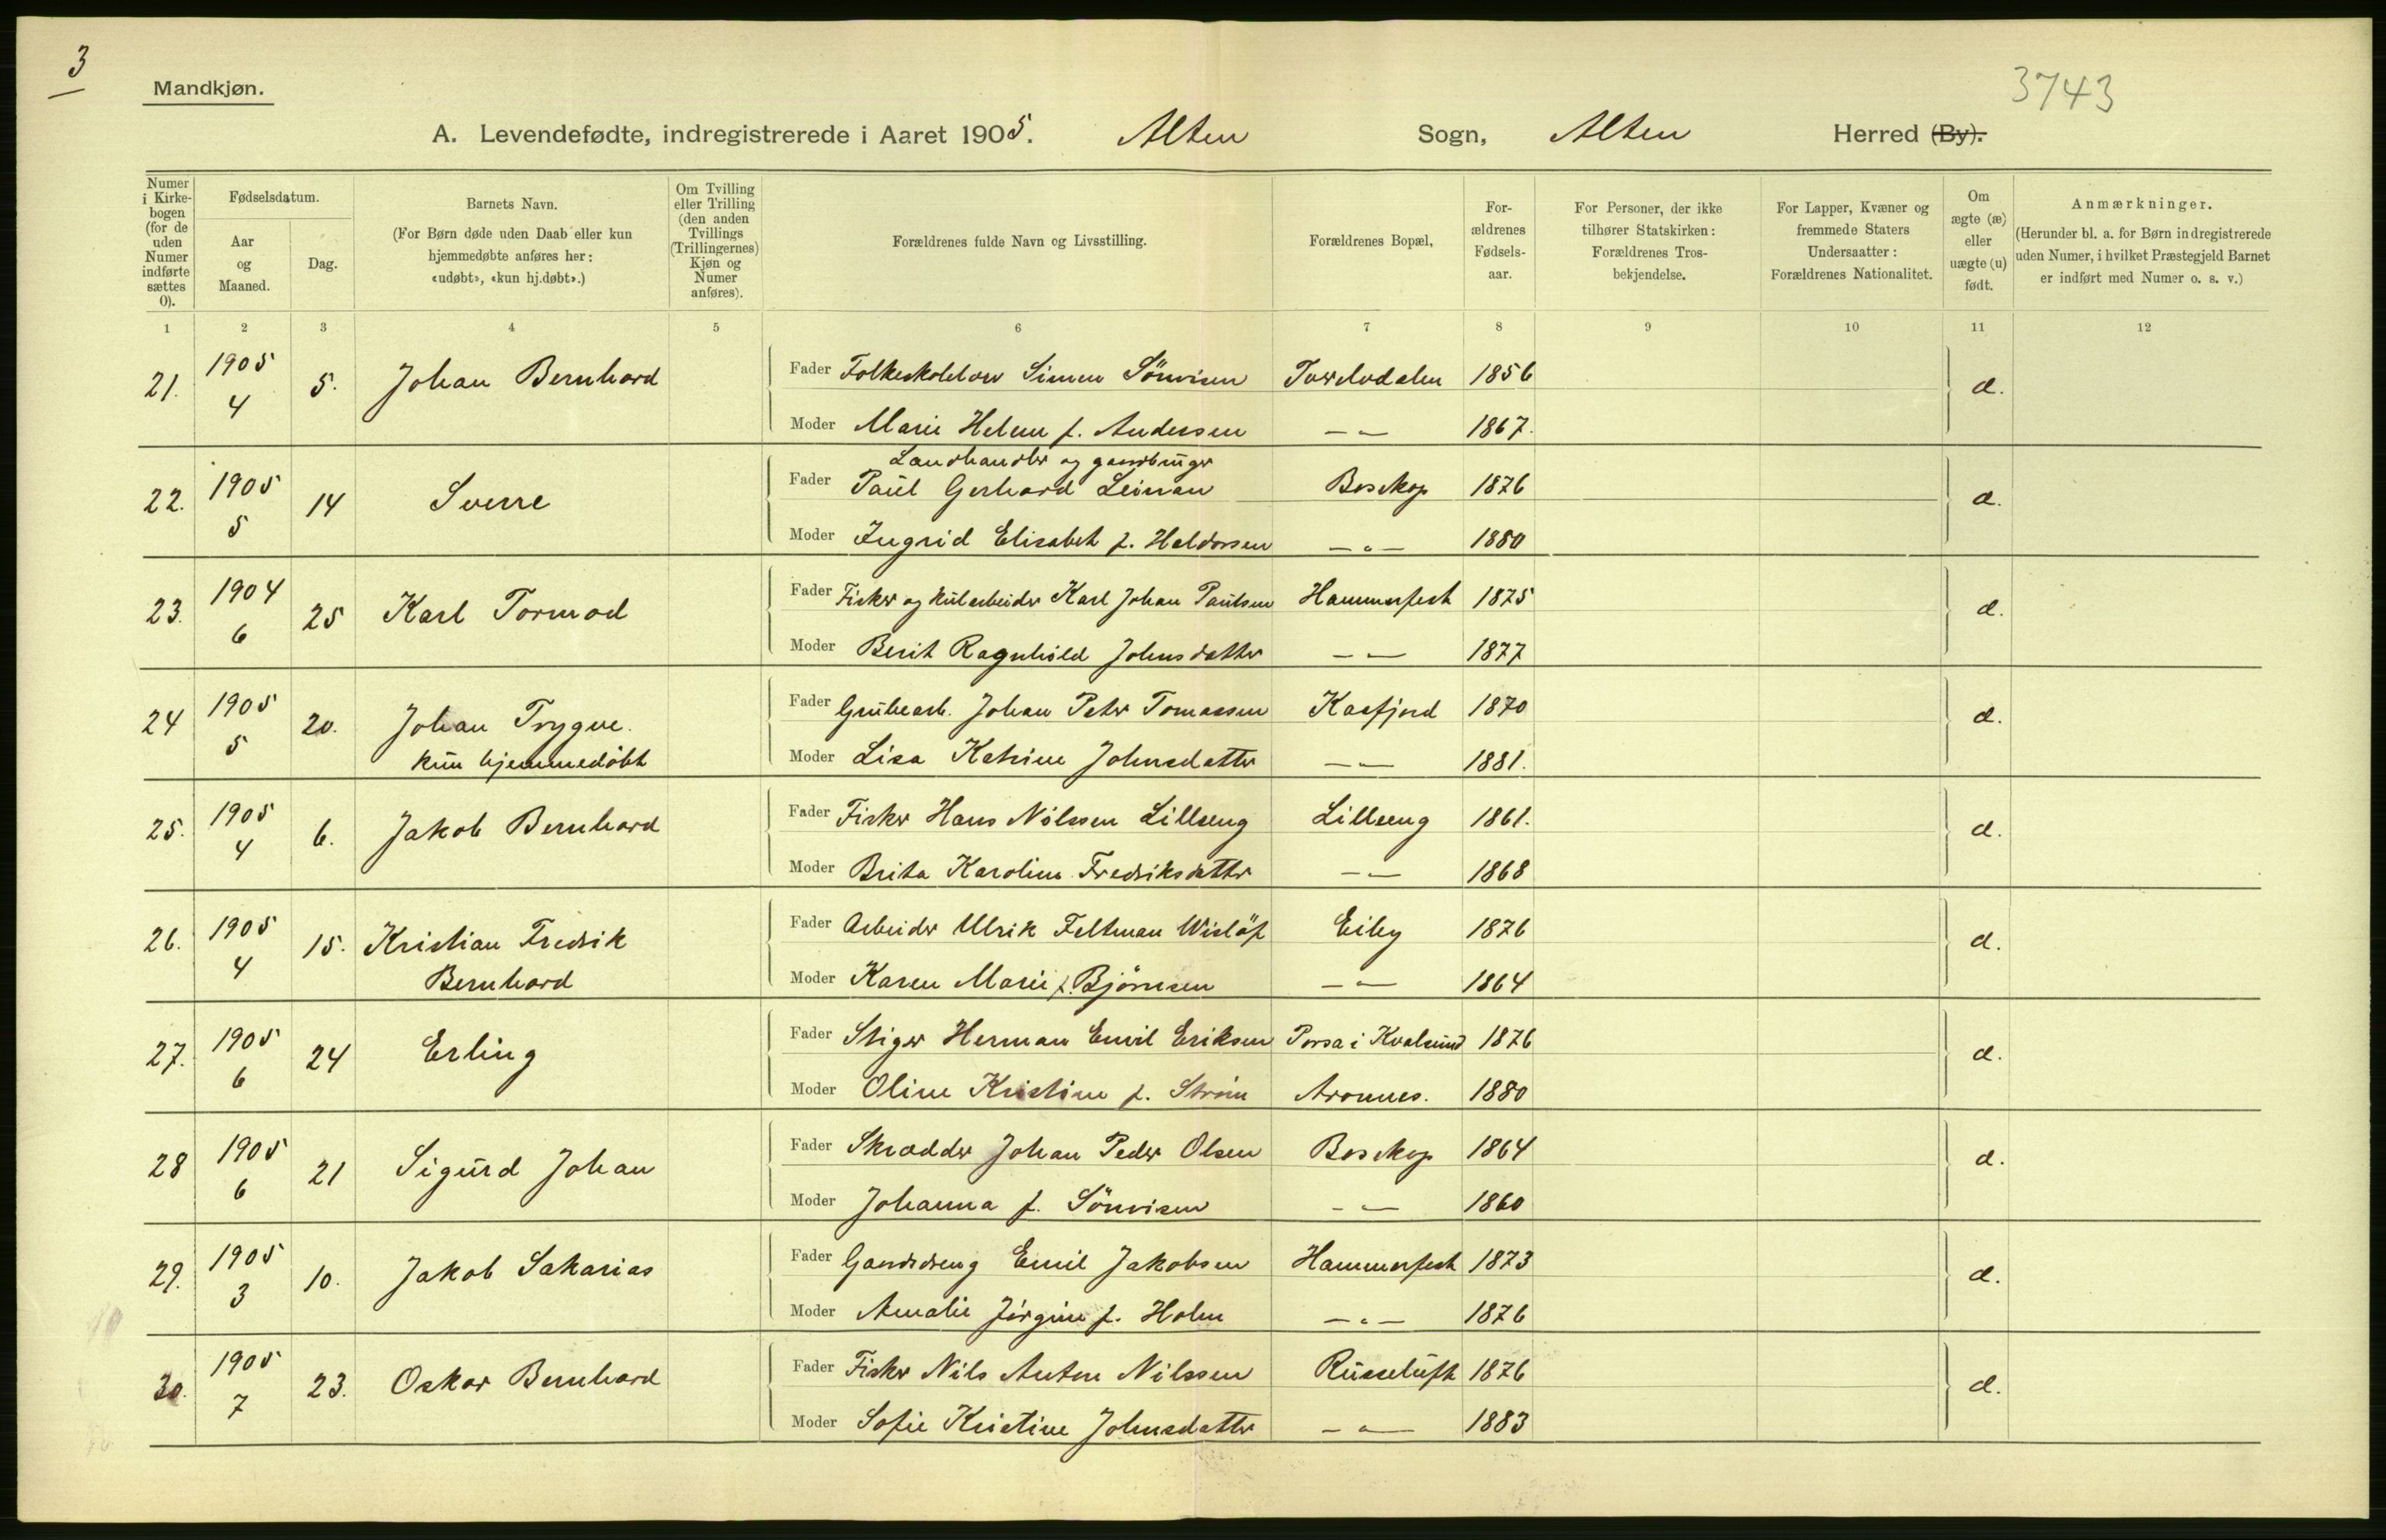 3
Mandkjøn.
3743
A. Levendefødte, indregistrerede i Aaret 1905. Alten Sogn, Alten Herred (By).
Numer i Kirkebogen (for de uden Numer indførte sættes 0).
Fødselsdatum.
Aar og Maaned.
Dag.
Barnets Navn.
(For Børn døde uden Daab eller kun hjemmedøbte anføres her: «udøbt», «kun hj.døbt».)
Om Tvilling eller Trilling (den anden Tvillings (Trillingernes) Kjøn og Numer anføres).
Forældrenes fulde Navn og Livsstilling.
Forældrenes Bopæl,
Forældrenes Fødselsaar.
For Personer, der ikke tilhører Statskirken: Forældrenes Trosbekjendelse.
For Lapper, Kvæner og fremmede Staters Undersaatter: Forældrenes Nationalitet.
Om ægte (æ) eller uægte (u) født.
Anmærkninger.
(Herunder bl. a. for Børn indregistrerede uden Numer, i hvilket Præstegjeld Barnet er indført med Numer o. s. v.)
1 2 3 4 5 6 7 8 9 10 11 12
21. 1905 4 5. Johan Bernhard Fader Simon Sönvisen 1856 æ.
Moder Marie Helene f. Andersen -"- 1867.
Landhandler og gaardbruger
22. 1905 5 14 Sverre Fader Paul Gerhard Leinan Bosekop 1876 æ.
Moder Ingrid Elisabet f. Haldorsen -"- 1880
23. 1904 6 25 Karl Tormod Fader Fisker og kularbeider Karl Johan Paulsen Hammerfest 1875 æ.
Moder Berit Ragnhild Johnsdatter -"- 1877
24 1905 5 20. Johan Trygve. Fader Grubearb. Johan Peter Tomassen Kaafjord 1870 æ.
kun hjemmedöbt Moder Lisa Katrine Johnsdatter -"- 1881.
25. 1905 4 6. Jakob Bernhard Fader Fisker Hans Nilssen Lilleeng Lilleeng 1861. æ.
Moder Brita Karoline Fredriksdatter -"- 1868
26. 1905 4 15. Kristian Fredrik Fader Arbeider Ulrik Feltman Wislöf Eiby 1876 æ.
Bernhard Moder Karen Marie f. Björnsen -"- 1864
27. 1905 6 24 Erling Fader Stiger Herman Emil Eriksen Porsa i Kvalsund 1876 æ.
Moder Oline Kristine f. Ström Aronnes. 1880
28 1905 6 21 Sigurd Johan Fader Skrædder Johan Peder Olsen Bosekop 1864 æ.
Moder Johanna f. Sönvisen -"- 1860
29. 1905 3 10. Jakob Sakarias Fader Gaardsdreng Emil Jakobsen Hammerfest 1873 æ.
Moder Amalie Jörgine f. Holm -"- 1876
30. 1905 7 23. Oskar Bernhard Fader Fisker Nils Anton Nilssen Russeluft 1876 æ.
Moder Sofie Kristine Johnsdatter -"- 1883